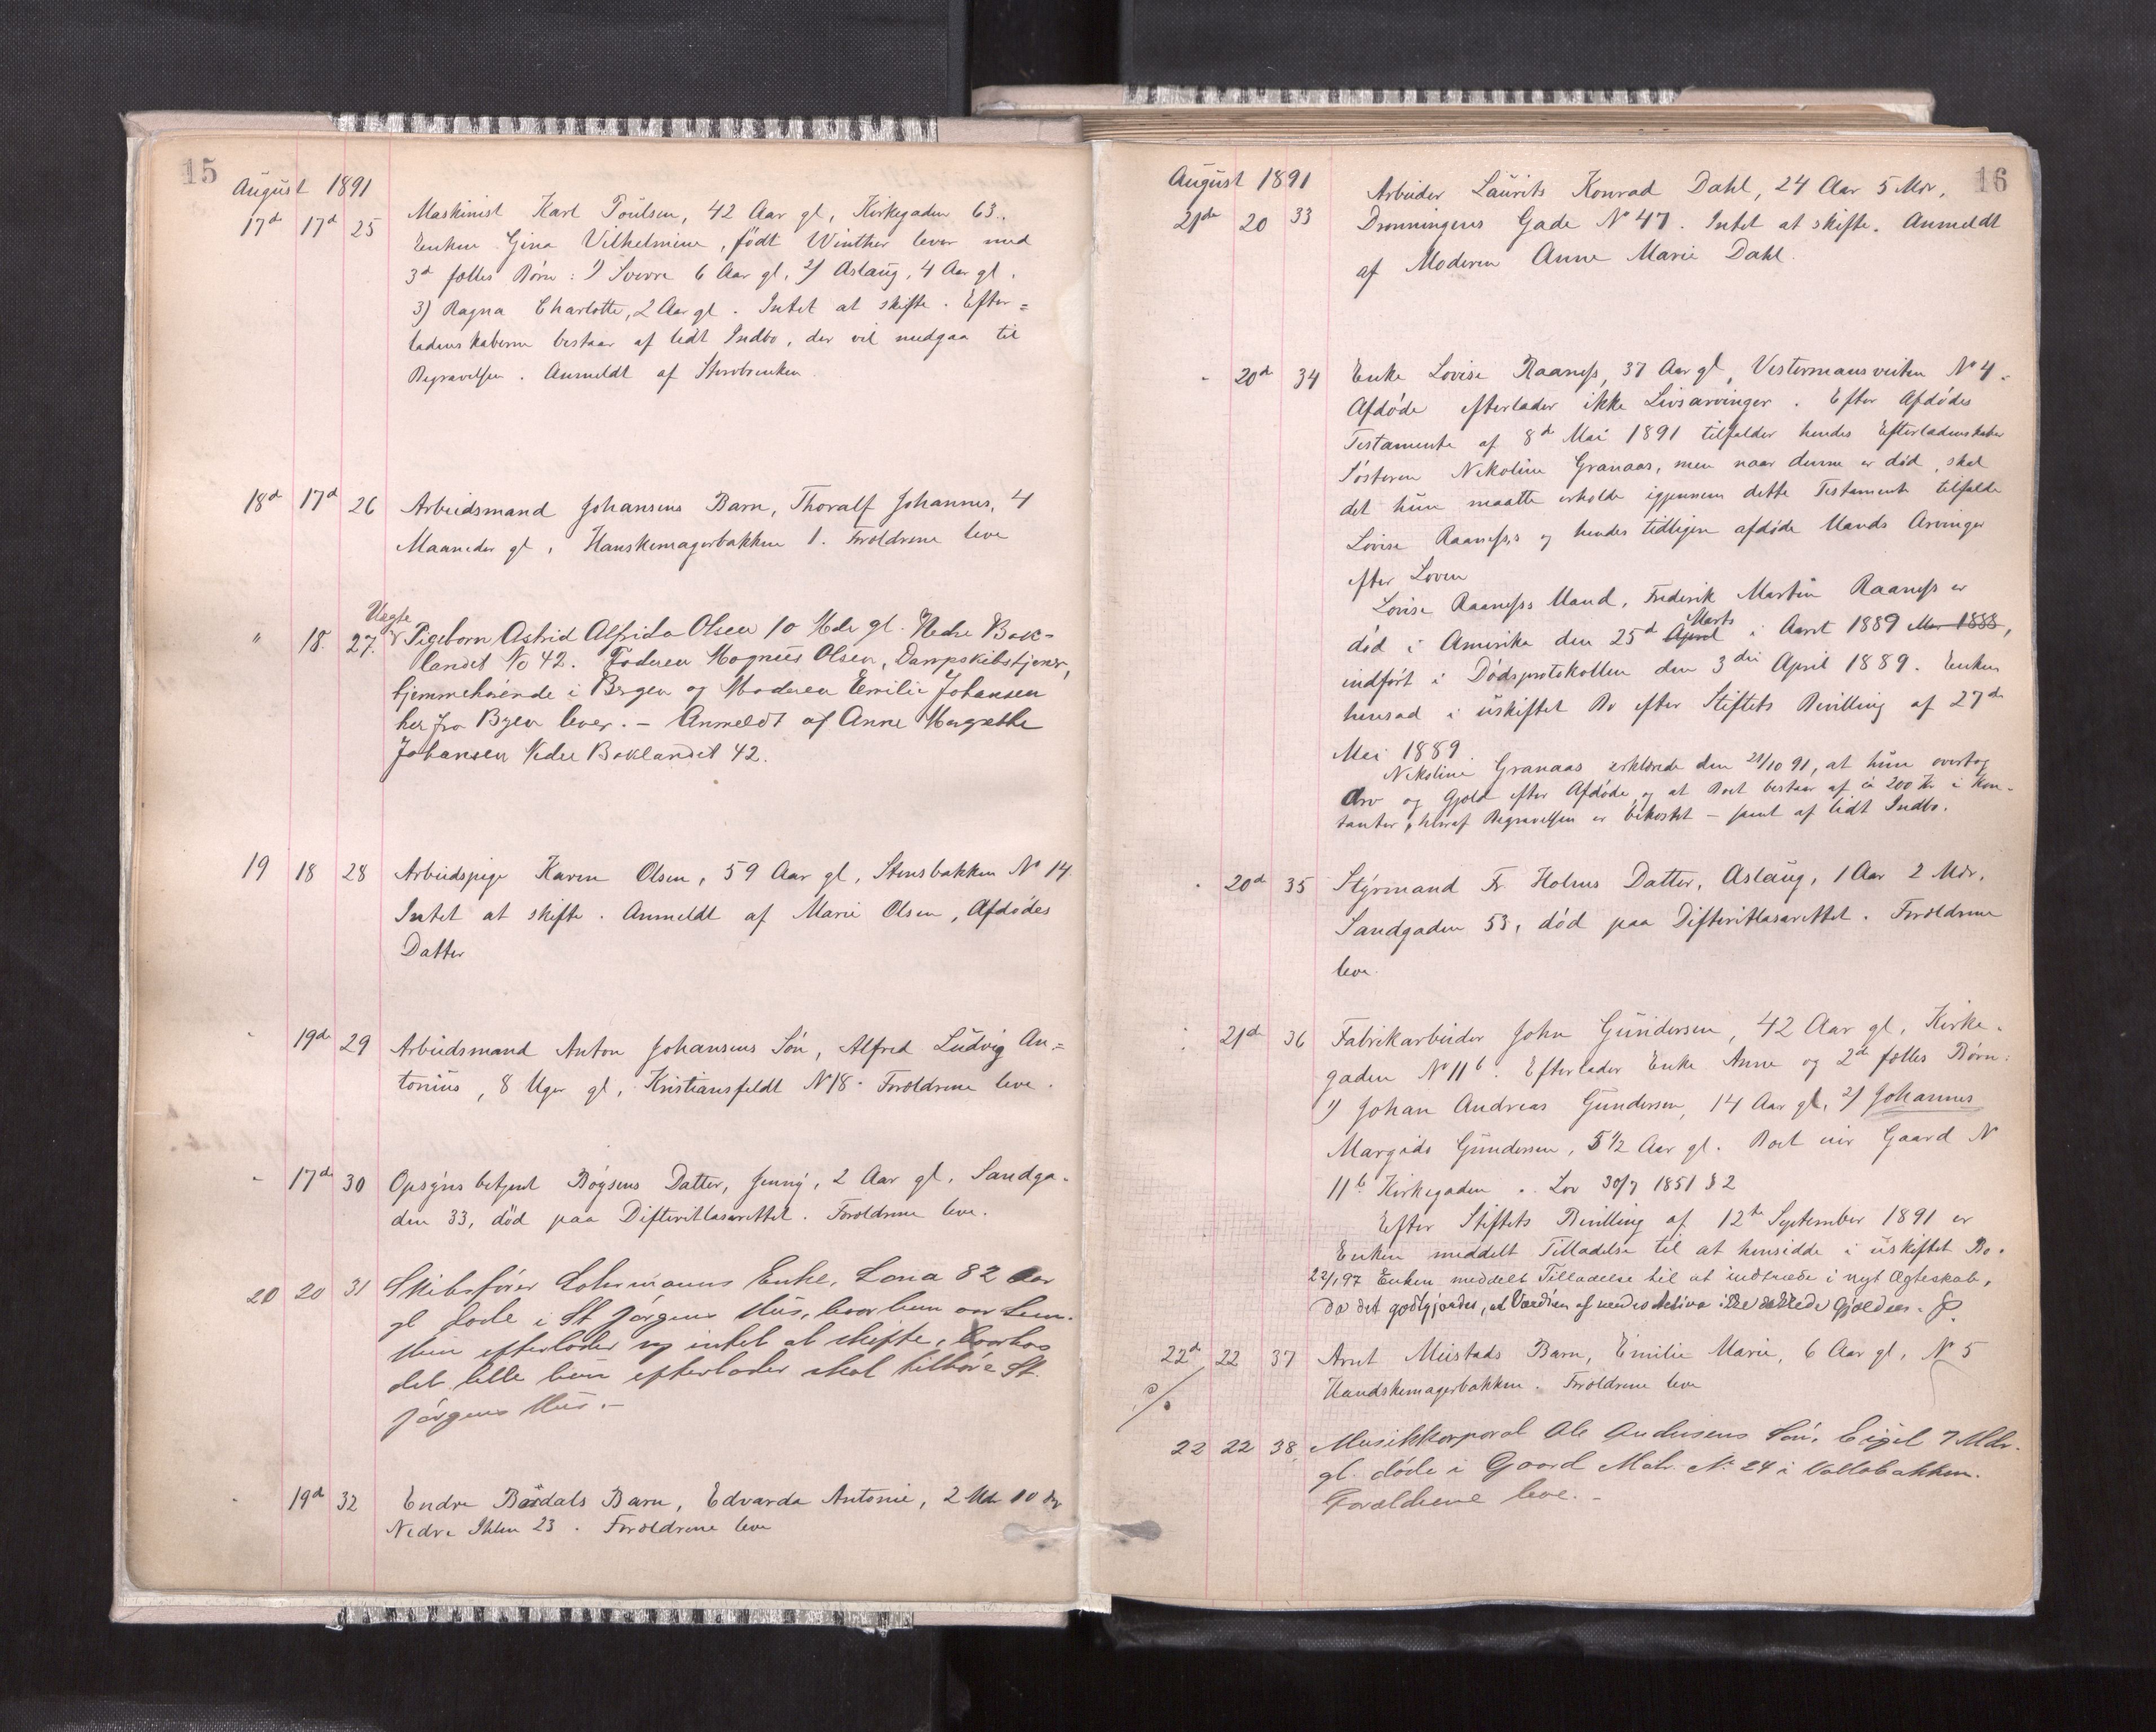 15
August 1891
17d 17d 25 Maskinist Karl Poulsen, 42 Aar gl, Kirkegaden 63.
Enken Gina Vilhelmine, født Winther lever med
3d fælles Børn: 1) Sverre 6 Aar gl, 2) Aslaug, 4 Aar gl.
3) Ragna Charlotte, 2 Aar gl. Intet at skifte. Efter=
ladenskaberne bestaar af lidt Indbo, der vil medgaa til
Begravelsen. Anmeldt af Stervbenken
18d 17d 26 Arbeidsmand Johansens Barn, Thoralf Johannes, 4
Maaneder gl, Hanskemagerbakken 1. Forældrene leve
Uægte
" 18. 27. Pigebarn Astrid Alfrida Olsen 10 Mdr gl. Nedre Bak-
landet No 42. Faderen Magnus Olsen, Dampskibstjener,
hjemmehørende i Bergen og Moderen Emilie Johansen
her fra Byen lever. - Anmeldt af Anne Margrethe
Johansen Nedre Baklandet 42.
19 18 28 Arbeidspige Karen Olsen, 59 Aar gl, Stensbakken No 14.
Intet at skifte. Anmeldt af Marie Olsen, Afdødes
Datter
" 19de 29 Arbeidsmand Anton Johansens Søn, Alfred Ludvig An=
tonius, 8 Uger gl, Kristiansfeldt N 18. Forældrene leve.
" 17d 30 Opsynsbetjent Bøysens Datter, Jenny, 2 Aar gl, Sandga-
den 33, død paa Difteritlasarettet. Forældrene leve.
20 20 31 Skibsfører Enke, 82 Aar
gl døde i St Jørgens Hus, hvor hun var Lem.
Hun efterlader sig intet at skifte, hvorhos
det lille hun efterlader skal tilhøre St.
Jørgens Hus.-
" 19d 32 Endre Barn, Edvarda Antonie, 2 Mdr 10 Dg
Nedre Ihlen 23. Forældrene leve
16
August 1891
21de 20 33 Arbeider Laurits Konrad Dahl, 24 Aar 5 Mdr,
Dronningens Gade No 47. Intet at skifte. Anmeldt
af Moderen Anne Marie Dahl.
" 20d 34 Enke Lovise Raaness, 37 Aar gl, Vestermansveiten No 4.
Afdøde efterlader ikke Livsarvinger. Efter Afdødes
Testamente af 8d Mai 1891 tilfalder hendes Efterladenskaber
Søsteren Nekoline Granaas, men naar denne er død, skal
det hun maatte erholde igjennem dette Testamente tilfalde
Lovise Raaness's og hendes tidligere afdøde Mands Arvinger
efter Loven
Lovise Raaness's Mand, Frederik Martin Raaness er
Marts
død i Amerika den 25d April i Aaret 1889 1888,
indført i Dødsprotokollen den 3die April 1889. Enken
hensad i uskiftet Bo efter Stiftets Bevilling af 27de
Mai 1889.
Nekoline Granaas erklærede den 21/10 91, at hun overtog
Arv og Gjæld efter Afdøde og at Boet bestaar af ca 200 Kr i Kon-
tanter, hvoraf Begravelsen er bekostet - samt af lidt Indbo.
" 20d 35 Styrmand Fr. Holms Datter, Aslaug, 1 Aar 2 Mdr,
Sandgaden 53, død paa Difteritlasarettet. Forældrene
leve.
" 21de 36 Fabrikarbeider John Gundersen, 42 Aar gl, Kirke-
gaden No 11b. Efterlader Enke Anne og 2de fælles Børn:
1) Johan Andreas Gundersen, 14 Aar gl, 2) Johannes
Margido Gundersen, 5 1/2 Aar gl. Boet eier Gaard N
11b Kirkegaden. Lov 30/7 1851 § 2
Efter Stiftets Bevilling af 12te September 1891 er
Enken meddelt Tilladelse til at hensidde i uskiftet Bo.
22/1 97 Enken meddelt Tilladelse til at indtræde i nyt Ægteskab,
da det godtgjordes, at Værdien af hendes Aktiva ikke dækkede Gjælden.
22d 22 37 Arnt Meistads Barn, Emilie Marie, 6 Aar gl, No 5
Handskemagerbakken. Forældrene leve
22 22 38. Musikkorporal Ole Andersens Søn, Eigil 7 Mdr.
gl. døde i Gaard Matr. No 24 i Vollabakken.
Forældrene leve. -